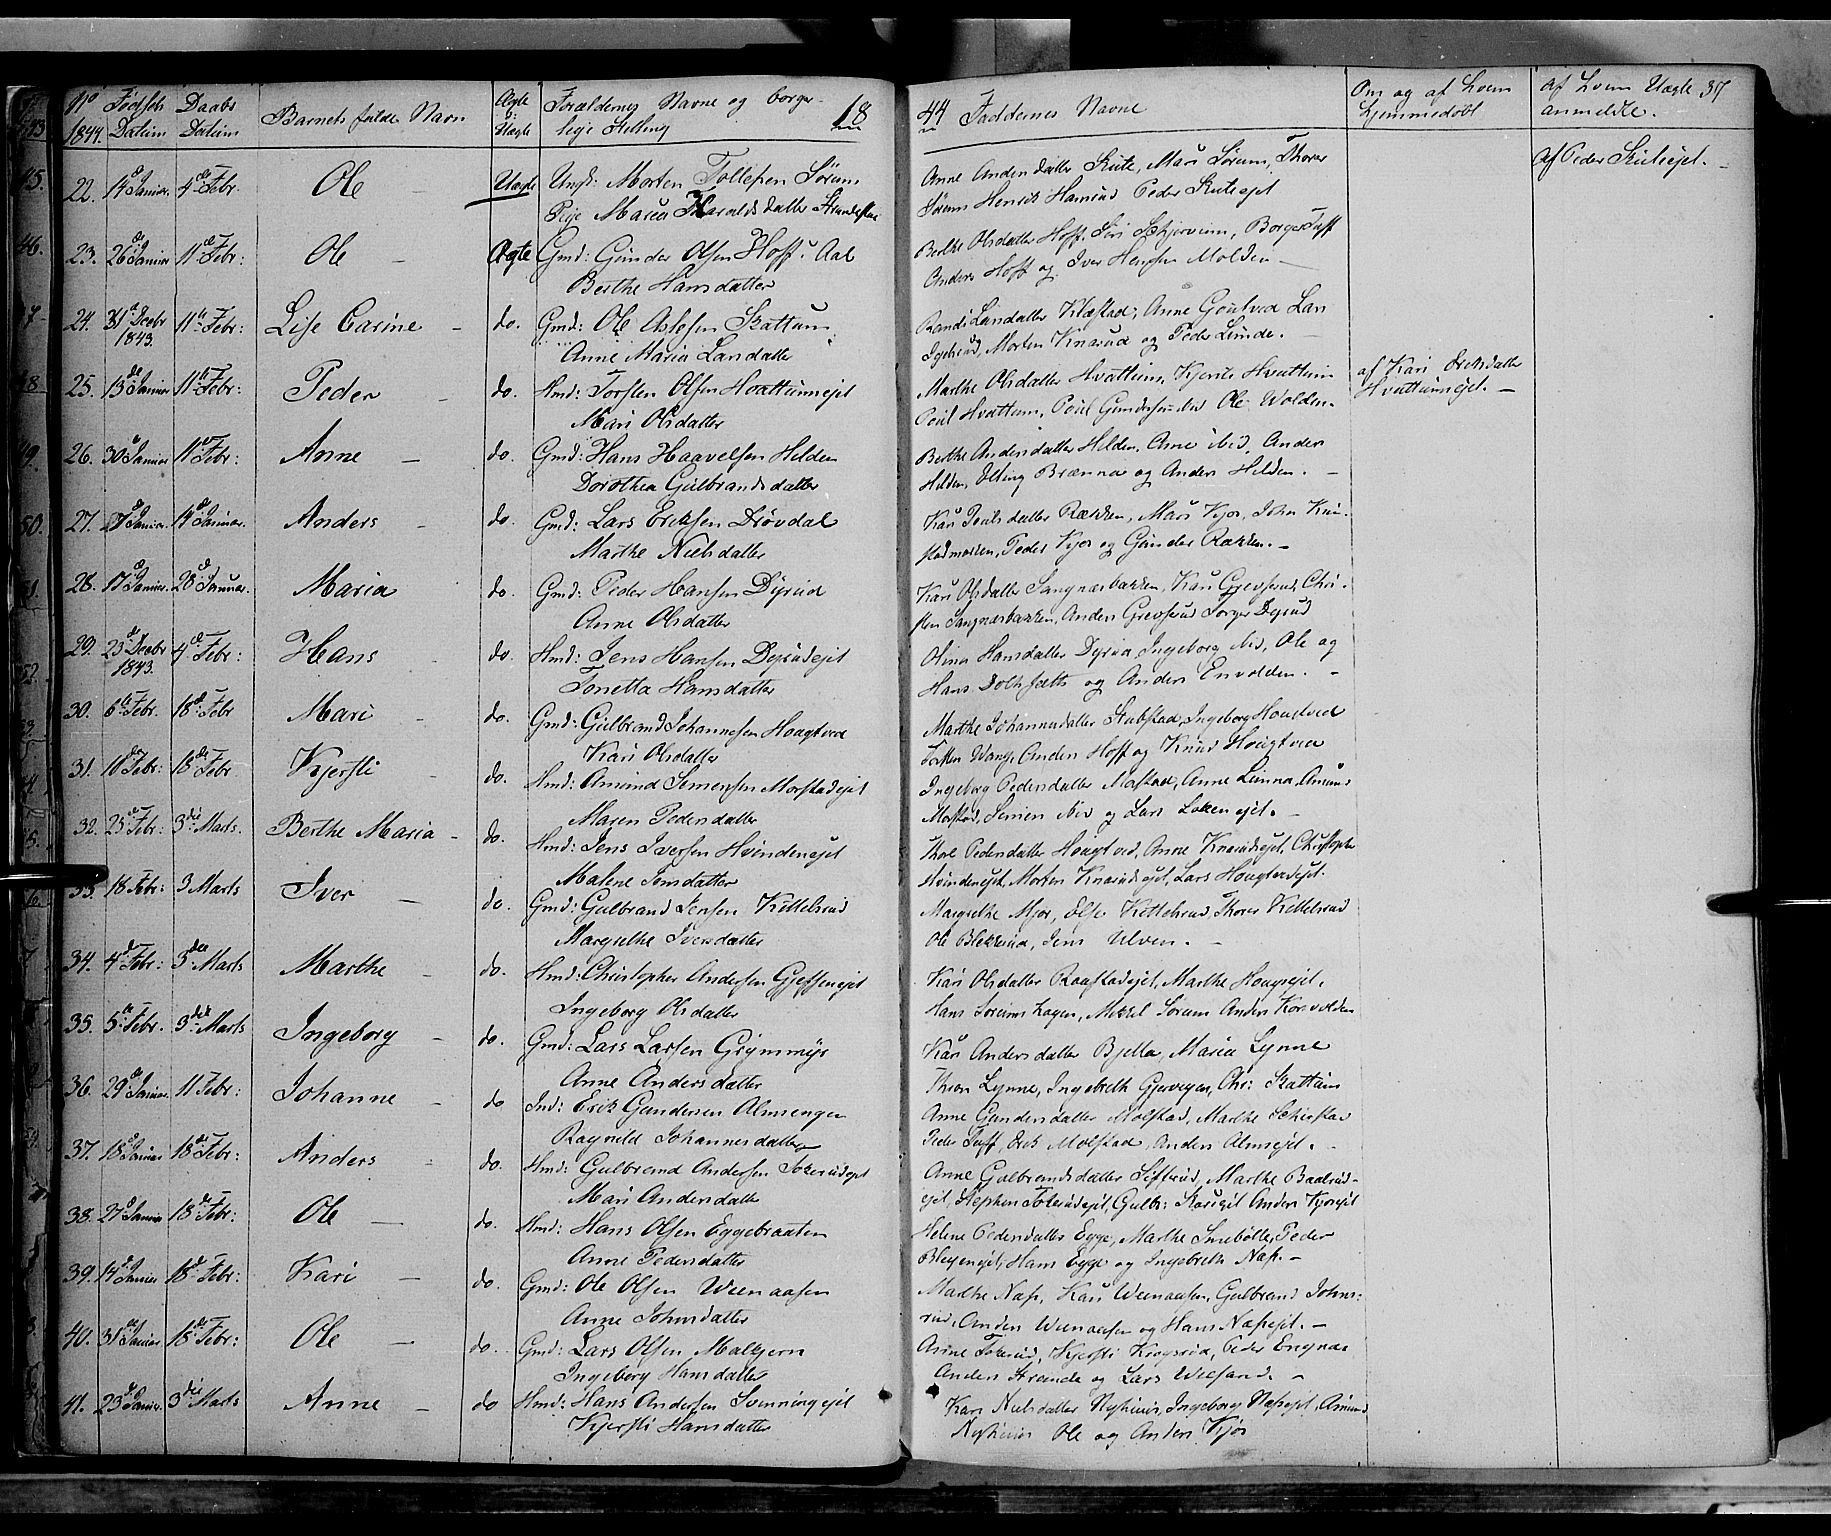 No Fødsels Daabs Barnets fulde Navn Ægte Forældernes Navne og borger- 18
1844. Datum Datum Uægte lige Stilling
44 Faddernes Navne Om og af hvem af hvem Uægte 37
hjemmedøbt anmeldte.
22. 14 Januar. 4de Febr: Ole Uægte Ungk: Morten Tollefsen Sørum
Pige Maria Haralds datter
Anne Andersdatter Skute, Mari Sørum, Thorer af Peder Skuteejet.
Sørum Henrik Hamrud Peder Skuteejet
23. 26de Januar 11te Febr: Ole Ægte Gmd: Gunder Olsen Hoff. Aal
Berthe Hansdatter
Berthe Olsdatter Hoff, Siri Schjervum, Borger Tuff
Anders Hoff og Iver Hansen Molden
24. 31te Decbr 11te Febr: Lise Carine do. Gmd: Ole Aslesen Skattum
1843. Anne Maria Larsdatter
Randi Larsdatter Klæstad, Anne Goutvea Lars
Morten Knarud og Peder Lunde.
25. 13de Januar 11te Febr: Peder do. Hmd: Torsten Olsen Hvattumejet
Mari Olsdatter
Marthe Olsdatter Hvattum, Kjersti Hvattum af Kari Eriksdatter
Poul Hvattum, Poul Gundersen ibid Ole Volden. Hvattumejet.
26. 30 Januar 11te Febr: Anne do. Gmd: Hans Haavelsen Helden
Dorothea Gulbrandsdatter
Berthe Andersdatter Helden, Anne ibid, Anders
Helden, Elling Brænna og Anders Helden.
27. 7 Januar. 14 Januar. Anders do. Gmd: Lars Eriksen Drøvdal
Marthe Nielsdatter
Kari Poulsdatter Røkken, Mari Kjos, John
Peder Kjos og Gunder Røkken.
28. 17 Januar. 28 Januar. Maria do. Gmd: Peder Hansen Dyrud
Anne Olsdatter
Kari Olsdatter Sangnæsbakken, Kari Grevsrud, Chri-
sten Sangnæsbakken, Anders Grevsrud Torger Dyrud
29. 23 Decbr 4de Febr: Hans do. Hmd: Jens Hansen Dyrudejet
1843. Tonetta Hansdatter
Olina Hansdatter Dyrud, Ingeborg ibid, Ole og
Hans og Anders Envolden.
30. 6te Febr. 18de Febr Mari do. Gmd: Gulbrand Johannesen Hougtved
Kari Olsdatter
Marthe Johannesdatter Stabstad, Ingeborg Hougtved
Wang, Anders Hoff og Knud Hougtved
31. 10de Febr: 18de Febr Kjersti do. Hmd: Amund Simensen Morstadejet
Maren Pedersdatter
Ingeborg Pedersdatter Morstad, Anne Linna, Amund
Morstad, Simen ibid og Lars Lokenejet.
32. 25 Febr: 3die Marts. Berthe Maria do. Hmd: Jens Iversen Hvindenejet
Malene Jensdatter
Thore Pedersdatter Hougtved, Anne Knarudejet, Christopher
Hvindenejet, Morten Knarudejet, Lars Hougtvedejet.
33. 18 Febr: 3 Marts Iver do. Gmd: Gulbrand Jensen Kettelsrud
Margrethe Iversdatter
Margrethe Mjør, Else Kettelsrud, Thorer Kettelsrud
Ole Blekkerud, Jens Ulven.
34. 4de Febr: 3die Marts Marthe do. Hmd: Christopher Andersen Gjefsenejet
Ingeborg Olsdatter
Kari Olsdatter Raastadejet, Marthe Hougsejet.
Hans Sørum Hagen, Mikkel Sørum Anders Korsvolden
35. 5te Febr. 3die Marts Ingeborg do. Gmd: Lars Larsen Grymmyr
Anne Andersdatter
Kari Andersdatter Bjella, Maria Lynne
Thron Lynne, Ingebreth Gjuvegen, Chr: Skattum
36. 29de Januar. 11 Febr: Johanne do Ind: Erik Gundersen Almsengen
Ragnild Johannesdatter
Anne Gundersdatter Molstad, Marthe Schiestad
Peder Tuff, Erik Molstad, Anders Almsejet.
37. 18 Januar 18de Febr: Anders do. Hmd: Gulbrand Andersen Tokerudejet
Mari Andersdatter
Anne Gulbrandsdatter Sifterud, Marthe Baalrud-
ejet, Stephen Tokerudejet, Gulbr: Anders Kjosejet
38. 27 Januar 18de Febr: Ole do. Hmd: Hans Olsen Eggebraaten
Anne Pedersdatter
Helene Pedersdatter Egge, Marthe Smebølle, Peder
Blegenejet, Hans Egge og Ingebreth Næss.
39. 14 Januar 18de Febr: Kari do. Gmd: Ole Olsen Weenaasen
Anne Johnsdatter
Marthe Næss, Kari Weenaasen, Gulbrand Johns-
rud, Anders Weenaasen og Hans Næssejet.
40. 31de Januar 18de Febr: Ole do. Gmd: Lars Olsen Malkjern
Ingeborg Hansdatter
Anne Tokerud, Kjersti Krogsrud, Peder Engnæs
Anders Strande og Lars
41. 23 Januar. 3die Marts Anne do Hmd: Hans Andersen Svenningejet
Kjersti Hansdatter
Kari Nielsdatter Nyhuus, Ingeborg Næssejet, Amund
Nyhuus Ole og Anders Kjos